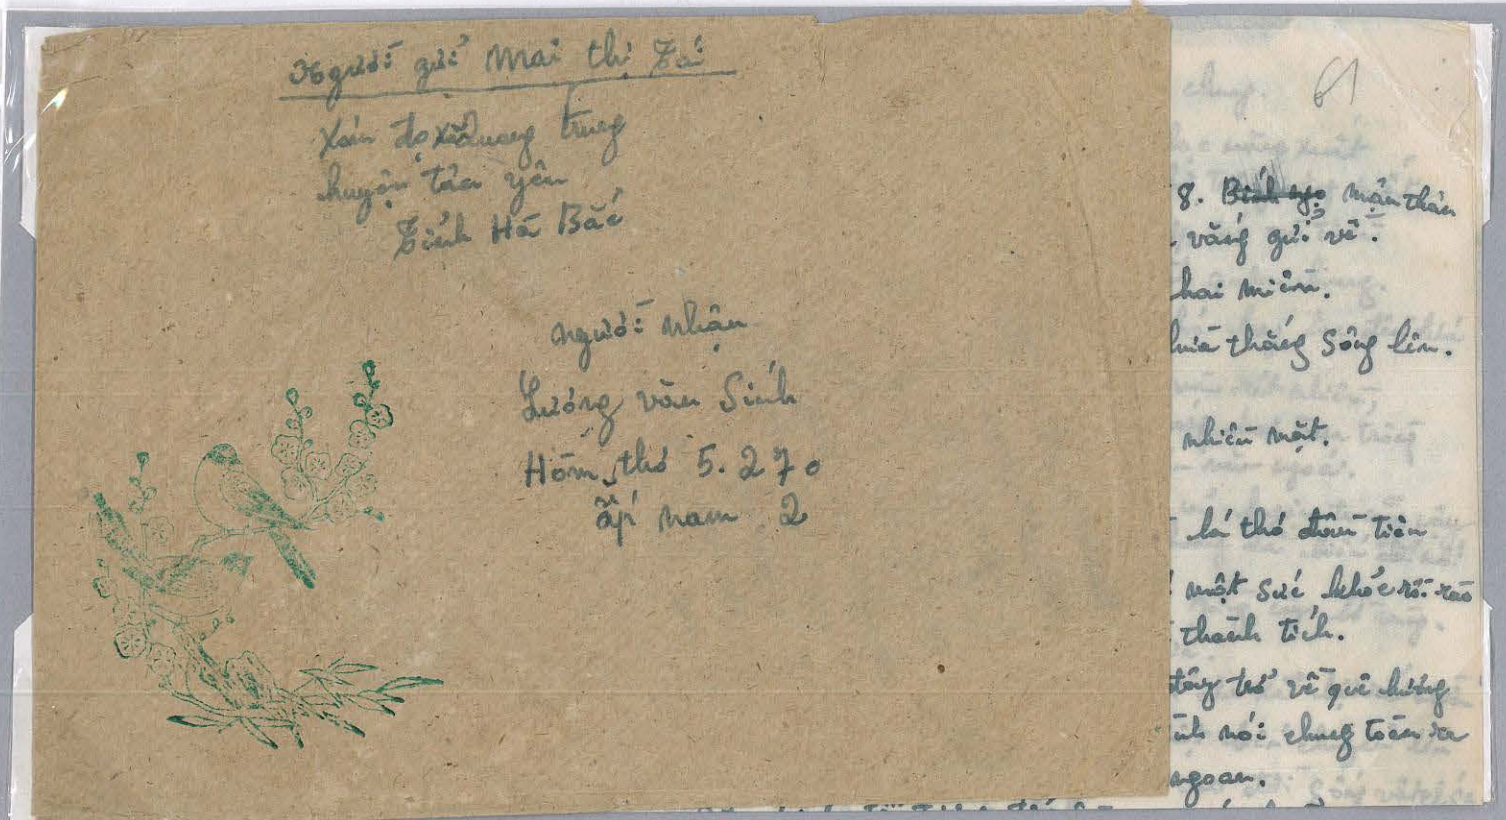 Người gửi Mai thị Tái
Xóm đọ xã quang trung
huyện tân yên
Tỉnh Hà Bắc
người nhận
Lương văn Sinh
Hòm thơ 5.270
ấp nam 2
61
chung.
8. Bính ngọ mậu thân
vắng gửi về.
hai miền.
thắng Sông liên.
nhiều mặt.
lá thơ đầu tiên
một sức khỏe rồi rào
thành tích.
trở về quê hương
nói chung toàn ra
ngoan.